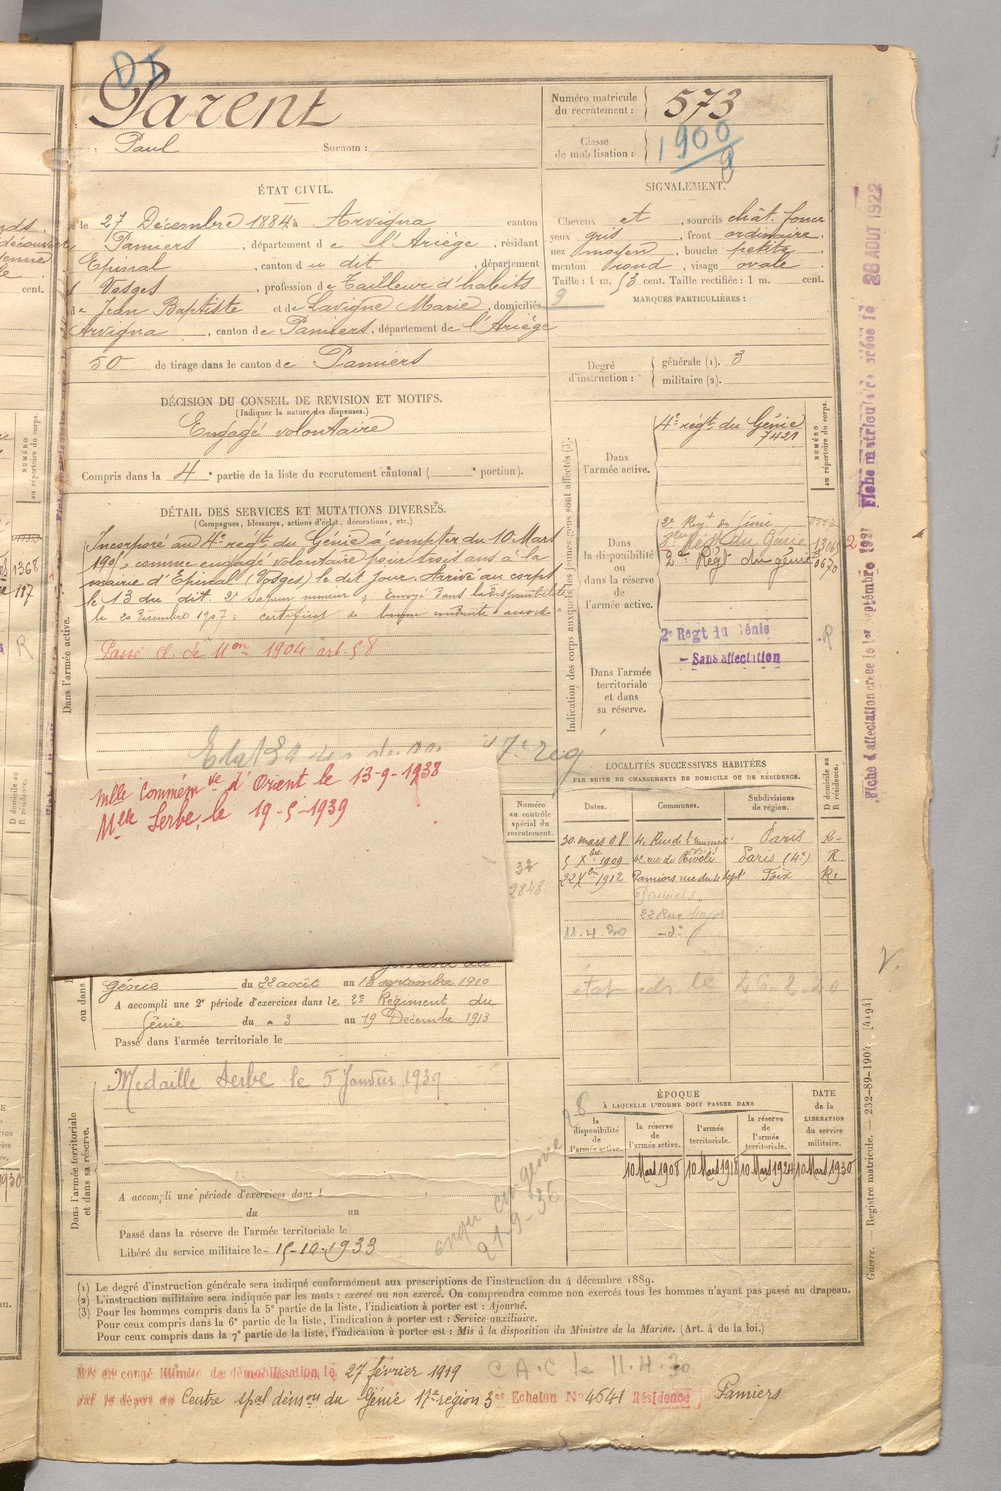 DT
Parent
Paul Surnom :
Numéro matricule du recrutement : 573
Classe de mobilisation : 1900
ÉTAT CIVIL.
le 27 Décembre 1884, à Arvigna canton
Pamiers, département de l'Ariège, résidant
Epinal, canton du dit, département
Vosges, profession de Tailleur d'habits
de Jean Baptiste et de Lavigne Marie, domiciliés
Arvigna, canton de Pamiers, département de l'Ariège
50 de tirage dans le canton de Pamiers
SIGNALEMENT.
Cheveux et, sourcils chât. foncé
yeux gris, front ordinaire
nez moyen, bouche petite
menton rond, visage ovale
Taille : 1 m. 53 cent. Taille rectifiée : 1 m. cent.
MARQUES PARTICULIÈRES :
Degré d'instruction :
générale (1). 3
militaire (2).
DÉCISION DU CONSEIL DE REVISION ET MOTIFS.
(Indiquer la nature des dispenses.)
Engagé volontaire
Compris dans la 4e partie de la liste du recrutement cantonal ( e portion).
DÉTAIL DES SERVICES ET MUTATIONS DIVERSES.
(Campagnes, blessures, actions d'éclat, décorations, etc.)
Dans l'armée active.
Incorporé au 4e regt. du Génie à compter du 10 Mars
1905, comme engagé volontaire pour trois ans à la
mairie d'Epinal (Vosges) le dit jour. Arrivé au corps
le 13 du dit. 2e Sapeur mineur ; Envoyé dans la disponibilité
Passé cl. de Mon 1904 art. 58
Indication des corps auxquels les jeunes gens sont affectés (3).
NUMÉRO au répertoire du corps.
Dans l'armée active.
4e régt. du Génie
7421
Dans la disponibilité ou dans la réserve de l'armée active.
2e Regt du Génie
2e Régt du génie
2e Régt du génie
Dans l'armée territoriale et dans sa réserve.
2e Regt du Génie
– Sans affectation
R
mlle commém ve d'Orient le 13-9-1938
Mlle Serbe, le 19-5-1939
Numéro au contrôle spécial du recrutement.
32
2848
LOCALITÉS SUCCESSIVES HABITÉES
PAR SUITE DE CHANGEMENTS DE DOMICILE OU DE RÉSIDENCE.
Dates. Communes. Subdivisions de région. D domicile ou R résidence.
30 mars 08 Paris R.
5 Xbre 1909 42, rue de Rivoli Paris (4e) R
22 Xbre 1912 Pamiers rue du 4 Sept Foix R.
Pamiers
22 Rue Major
11.4.30 -d°-
Génie du 22 août au 13 septembre 1910
A accompli une 2e période d'exercices dans le 2e Régiment du
Génie du 3 au 19 Décembre 1913
Passé dans l'armée territoriale le
Dans l'armée territoriale et dans sa réserve.
Medaille Serbe le 5 Janvier 1939
A accompli une période d'exercices dans l
du au
Passé dans la réserve de l'armée territoriale le
Libéré du service militaire le 15-10-1933
ÉPOQUE
À LAQUELLE L'HOMME DOIT PASSER DANS
la disponibilité de l'armée active.
la réserve de l'armée active.
l'armée territoriale.
la réserve de l'armée territoriale.
DATE de la LIBÉRATION du service militaire.
10 Mars 1908 10 Mars 1918 10 Mars 1924 10 Mars 1930
(1) Le degré d'instruction générale sera indiqué conformément aux prescriptions de l'instruction du 4 décembre 1889.
(2) L'instruction militaire sera indiquée par les mots : exercé ou non exercé. On comprendra comme non exercés tous les hommes n'ayant pas passé au drapeau.
(3) Pour les hommes compris dans la 5e partie de la liste, l'indication à porter est : Ajourné.
Pour ceux compris dans la 6e partie de la liste, l'indication à porter est : Service auxiliaire.
Pour ceux compris dans la 7e partie de la liste, l'indication à porter est : Mis à la disposition du Ministre de la Marine. (Art. 4 de la loi.)
Mis en congé illimité de démobilisation le 27 février 1919
C A C le 11.4.30
par le dépôt du Centre spal démon du Génie 17e région 3er Echelon No 4641 Résidence Pamiers
Fiche d'affectation créée le 1er septembre 1927
Fiche matriculaire créée le 28 AOUT 1922
Guerre. — Registre matricule. — 232-89-1904. [4194]